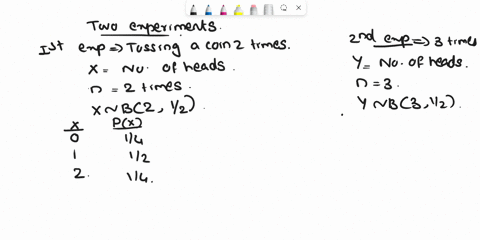 Two experiments.
Ist exp => Tussing a coin 2 times.
X = No. of heads.
n = 2 times.
X ~ B(2, 1/2)
X P(X)
0 1/4
1 1/2
2. 1/4.
2nd exp => 3 times
Y = No. of heads.
n = 3.
Y ~ B(3, 1/2).